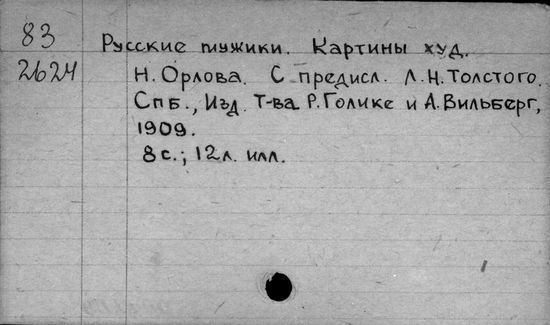 83
2624
Русские мужики. Картины худ.
Н. Орлова. С предисл. Л.Н. Толстого.
Спб., Изд. Т-ва Р. Голике и А. Вильберг,
1909.
8 с.; 12 л. илл.